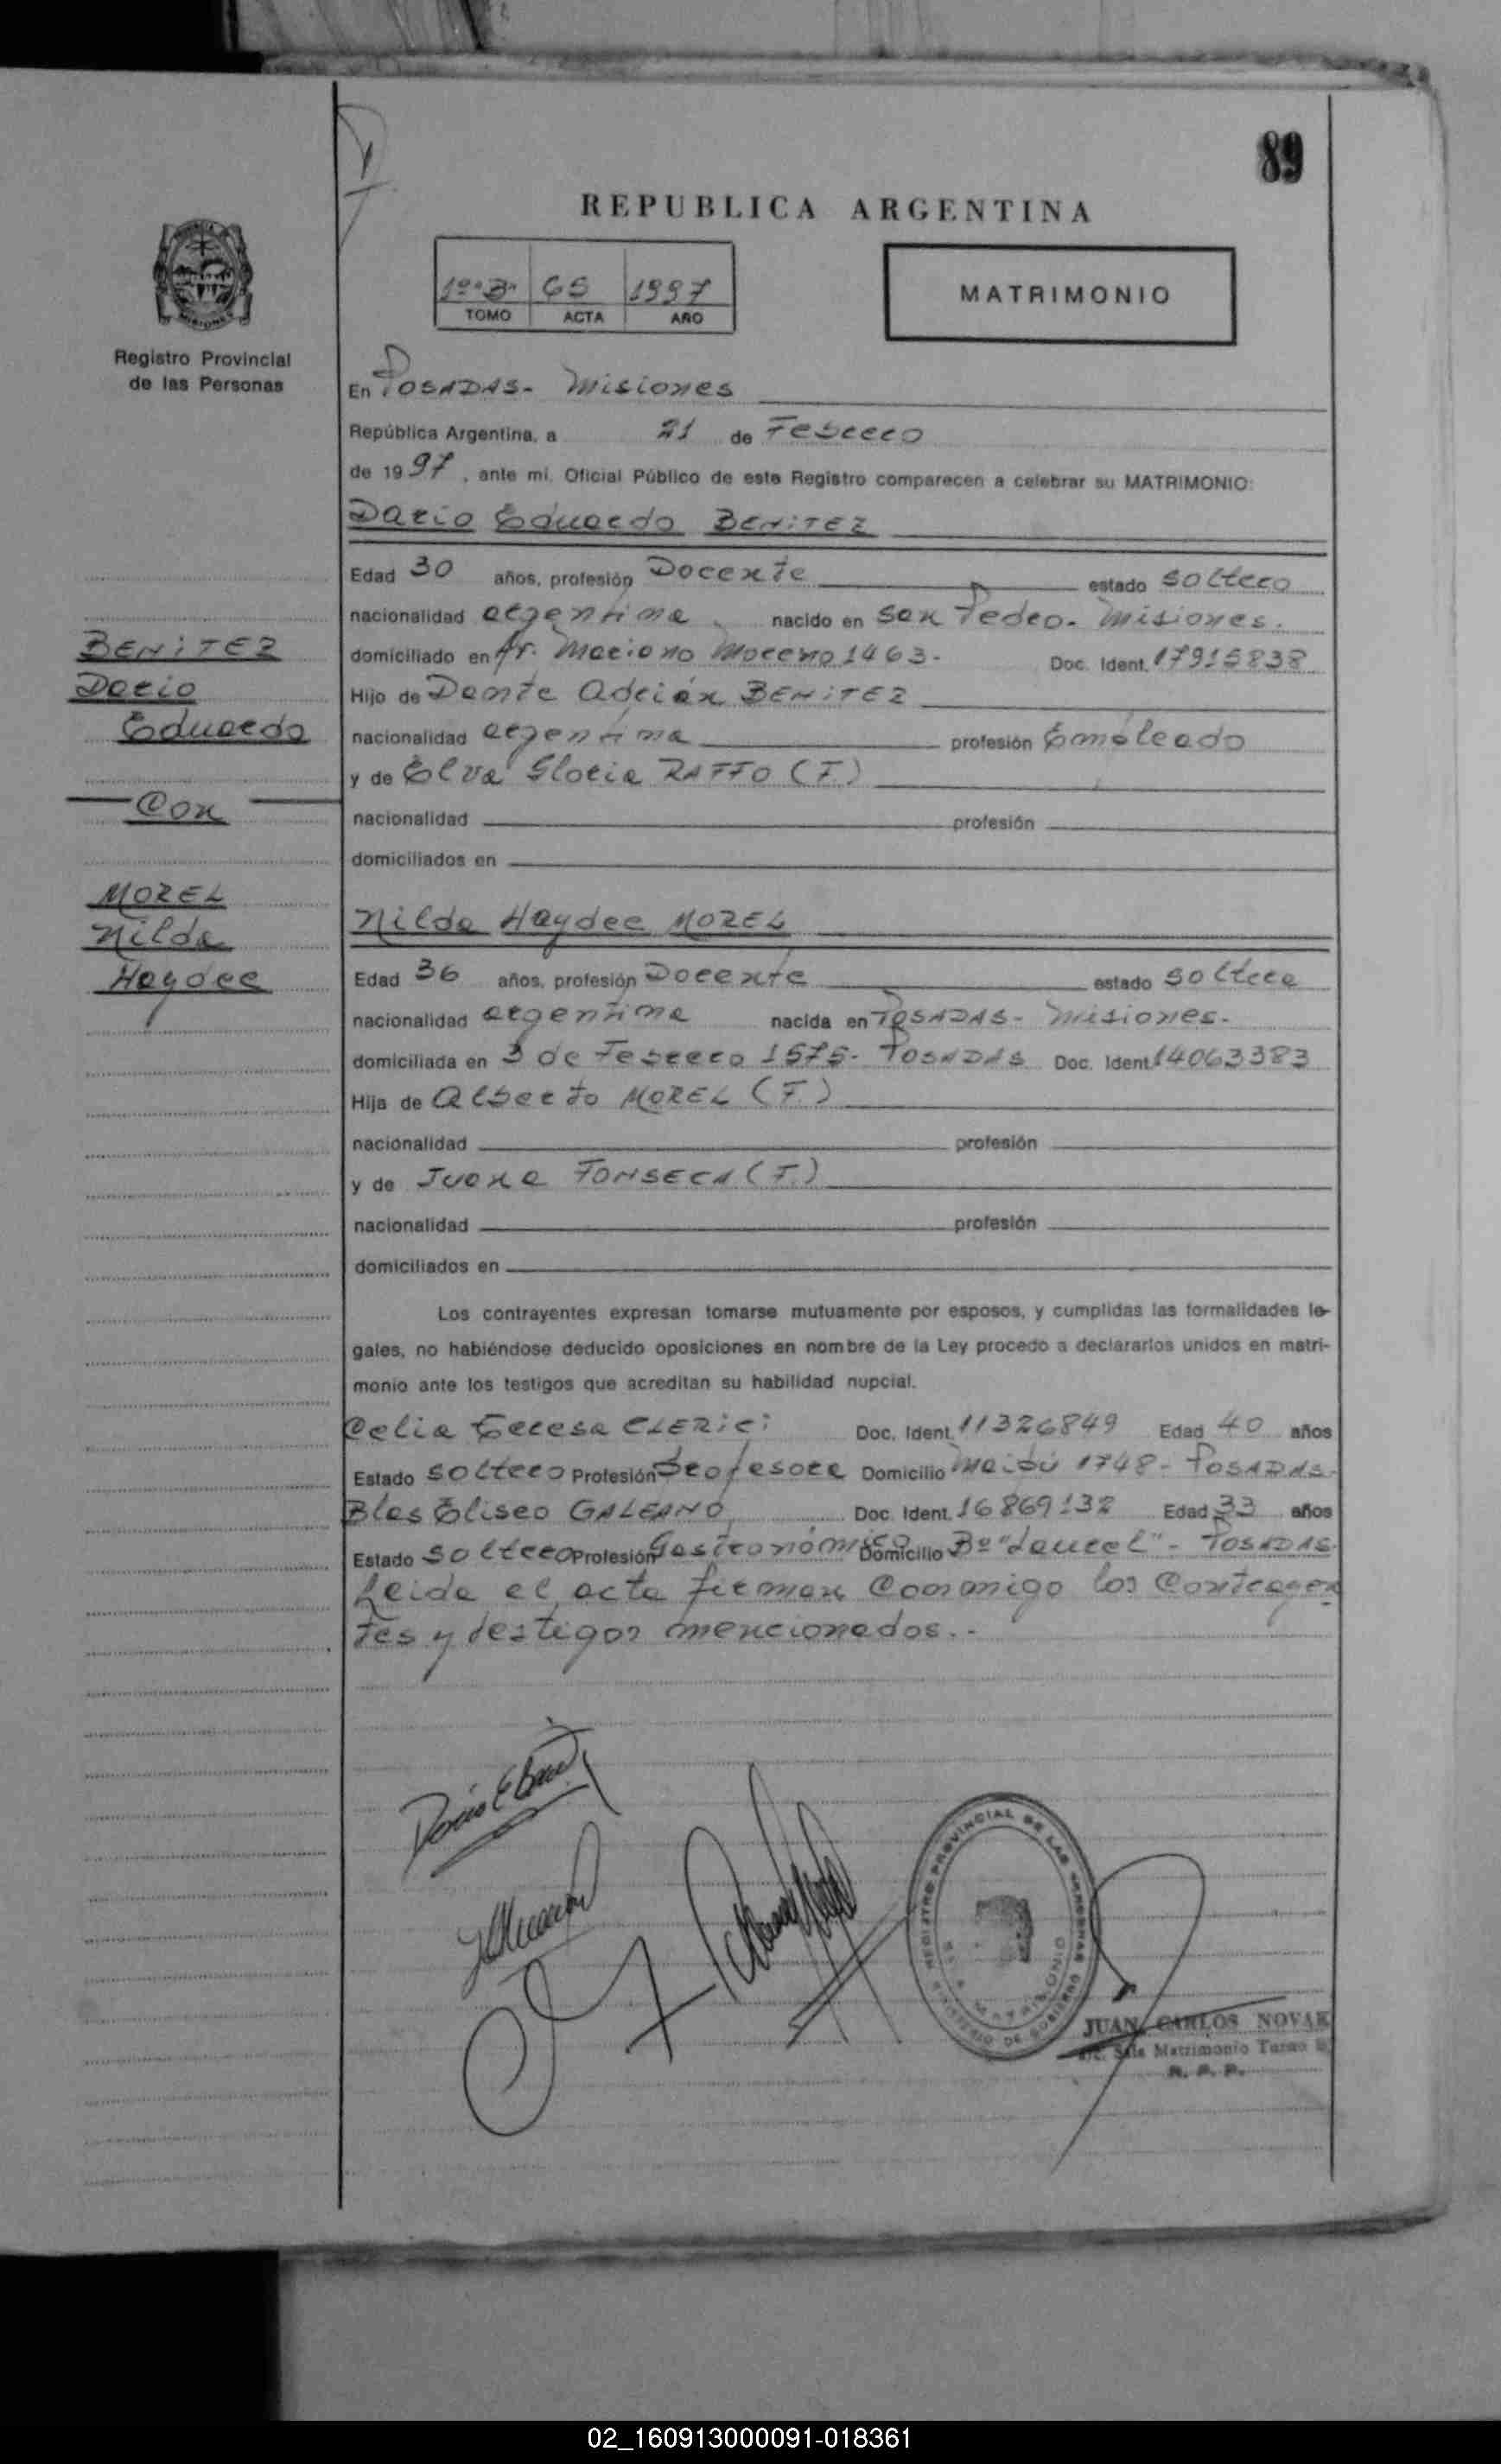 89
REPUBLICA ARGENTINA
1º "B" 65 1997
TOMO ACTA AÑO
MATRIMONIO
Registro Provincial
de las Personas
En POSADAS - Misiones
República Argentina, a 21 de Febrero
de 1997, ante mí, Oficial Público de este Registro comparecen a celebrar su MATRIMONIO:
Dario Eduardo BENiTEZ
Edad 30 años, profesión Docente estado soltero
nacionalidad argentina nacido en San Pedro - Misiones.
domiciliado en Mariano Moreno 1463 - Doc. Ident. 17915838
Hijo de Dante Adrián BENiTEZ
nacionalidad argentina profesión Empleado
y de Elva Gloria RAFFO (F.)
nacionalidad profesión
domiciliados en
BENiTEZ
Dario
Eduardo
Con
MOREL
Nilda
Haydee
Nilda Haydee MOREL
Edad 36 años, profesión Docente estado soltera
nacionalidad argentina nacida en POSADAS - Misiones.
domiciliada en 3 de Febrero 1575 - POSADAS Doc. Ident. 14063383
Hija de Alberto MOREL (F.)
nacionalidad profesión
y de Juana FONSECA (F.)
nacionalidad profesión
domiciliados en
Los contrayentes expresan tomarse mutuamente por esposos, y cumplidas las formalidades le-
gales, no habiéndose deducido oposiciones en nombre de la Ley procedo a declararlos unidos en matri-
monio ante los testigos que acreditan su habilidad nupcial.
Celia Teresa CLERici Doc. Ident. 11326849 Edad 40 años
Estado soltero Profesión Profesora Domicilio Maipú 1748 - POSADAS -
Blas Eliseo GALEANO Doc. Ident. 16869132 Edad 33 años
Estado soltero Profesión Gastronómico Domicilio Bº "Laurel" - POSADAS
Leida el acta firman conmigo los contrayen
tes y testigos mencionados. -
REGISTRO PROVINCIAL DE LAS PERSONAS
MINISTERIO DE GOBIERNO
MATRIMONIO
JUAN CARLOS NOVAK
Sala Matrimonio Turno
R. P. P.
02_160913000091-018361